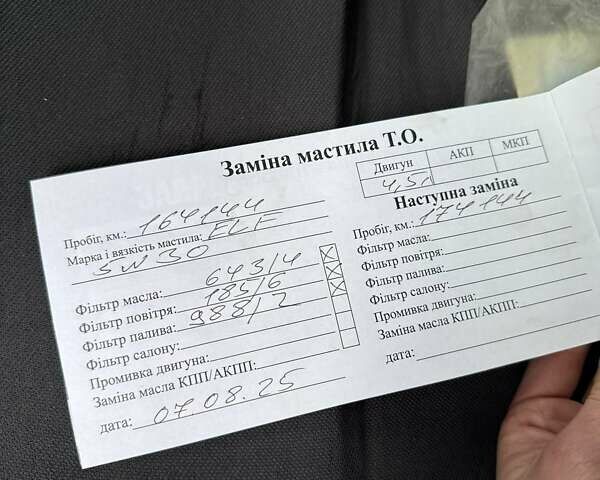 Заміна мастила Т.О.
Двигун АКП МКП
4,5л
Пробіг, км.: 164144
Марка і вязкість мастила: ELF
5W30
Фільтр масла: 643/4
Фільтр повітря: 185/6
Фільтр палива: 988/2
Фільтр салону:
Промивка двигуна:
Заміна масла КПП/АКПП:
дата: 07.08.25
Наступна заміна
Пробіг, км.: 174144
Фільтр масла:
Фільтр повітря:
Фільтр палива:
Фільтр салону:
Промивка двигуна:
Заміна масла КПП/АКПП:
дата: